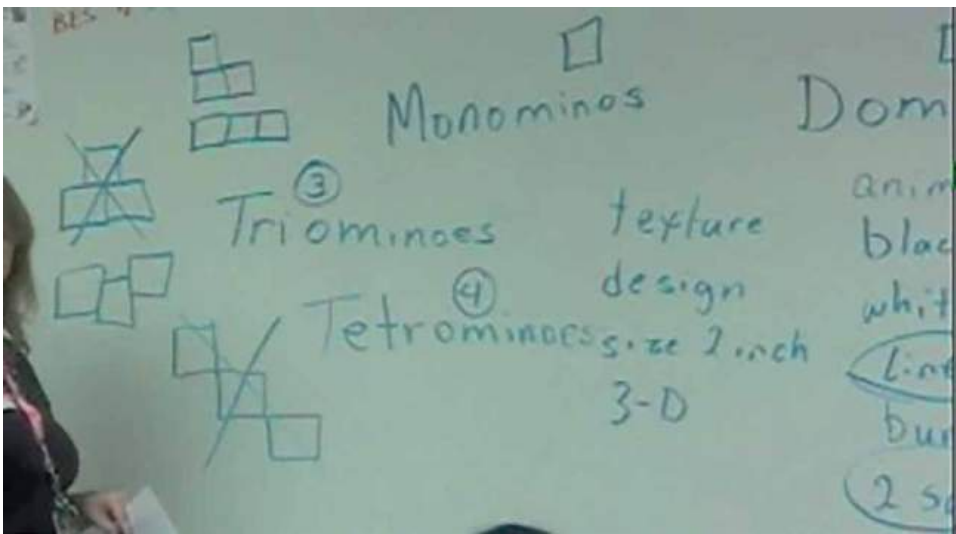 BES
Monominos
Dom
③
Triominoes
④
Tetrominoes
texture
design
size 2 inch
3-D
anim
blac
whit
line
bur
2 s